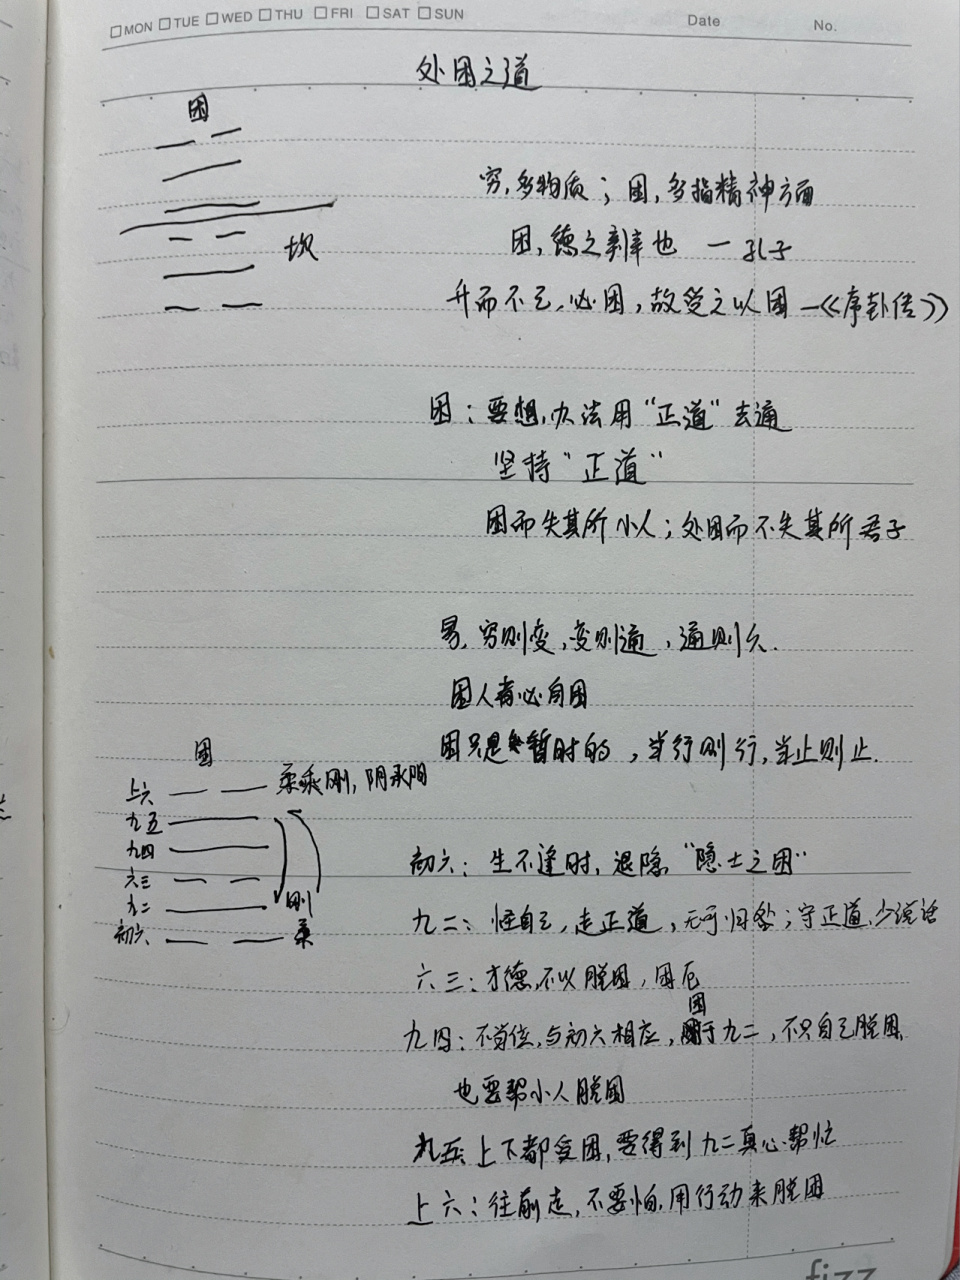 MON TUE WED THU FRI SAT SUN Date No.
处困之道
困
穷,多物质;困,多指精神方面
坎
困,德之辨也 — 孔子
升而不已,必困,故受之以困 —《序卦传》
困:要想办法用“正道”去通
坚持“正道“
困而失其所小人;处困而不失其所君子
易,穷则变,变则通,通则久.
困人者必自困
困只是暂时的,当行则行,当止则止.
困
上六 柔乘刚,阴承阳
九五
九四
六三
九二 刚
初六 柔
初六:生不逢时,退隐“隐士之困“
九二:怪自己,走正道,无可归咎;守正道,少说话
六三:才德不以脱困,困厄
九四:不当位,与初六相应,困于九二,不只自己脱困,
也要帮小人脱困
九五:上下都受困,要得到九二真心帮忙
上六:往前走,不要怕,用行动来脱困
fizz